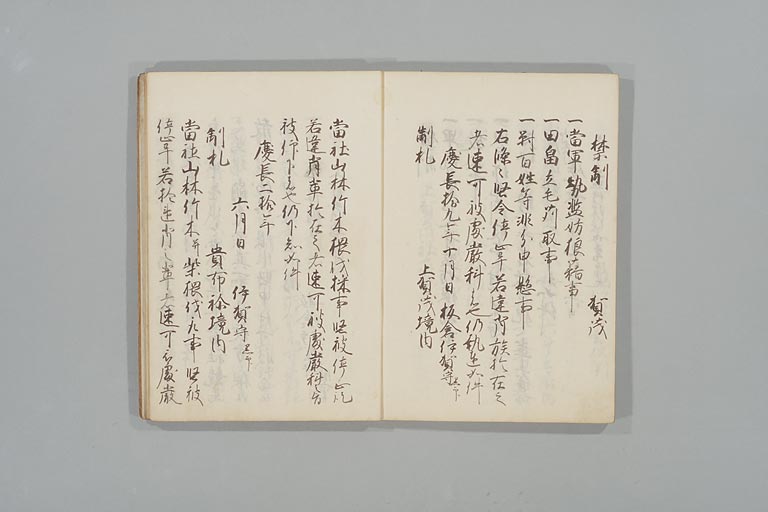 禁制 賀茂
一當軍勢濫妨狼藉事
一田畠立毛苅取事
一対百姓等非分申懸事
右條々堅令停止畢若違背族於在之
者速可被處嚴科者也仍執達如件
慶長拾九年十月日 板倉伊賀守在判
制札 上賀茂境内
當社山林竹木根伐採事堅被停止訖
若違背輩於在之者速可被處嚴科旨
被仰下者也仍下知如件
慶長二拾年
六月日 伊賀守在判
制札 貴布祢境内
當社山林竹木并柴根伐取事堅被
停止畢若於違背之輩者速可被處嚴